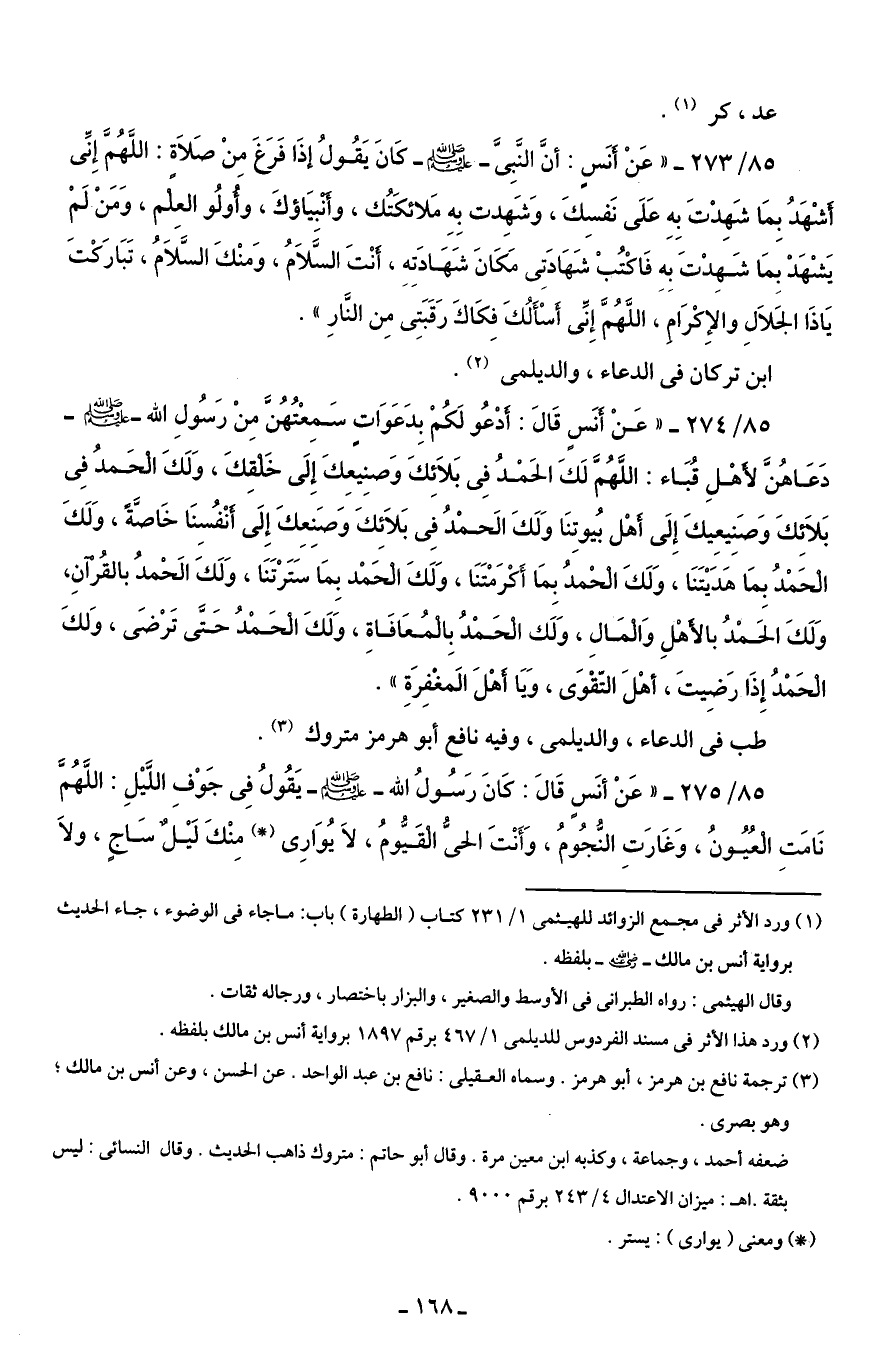 عد ، كر (١) .
٨٥/ ٢٧٣ ـ « عَنْ أَنَسٍ : أنَّ النَّبِىَّ ـ ﷺ ـ كَانَ يَقُولُ إذَا فَرَغَ مِنْ صَلَاَةٍ : اللَّهُمَّ إنِّى
أَشْهَدُ بِمَا شَهِدْتَ بِهِ عَلَى نَفسِكَ ، وَشَهِدت بِه مَلَائكَتُك ، وأَنْبِيَاؤكَ ، وأُولُو العِلْمِ ، وَمَنْ لَمْ
يَشْهَدْ بِمَا شَهِدْتَ بِهِ فَاكْتُبْ شَهَادَتِى مَكَانَ شَهَادَتِه ، أَنْتَ السَّلاَمُ ، وَمنْكَ السَّلاَمُ ، تَبَارَكْتَ
يَاذَا الجَلاَلِ والإكْرَامِ ، اللَّهُمَّ إنِّى أَسْأَلُكَ فِكَاكَ رَقَبَتِى مِن النَّارِ » .
ابن تركان فى الدعاء ، والديلمى (٢) .
٨٥/ ٢٧٤ ـ « عَنْ أَنَسٍ قَالَ : أَدْعُو لَكُمْ بِدَعَوَاتٍ سَمِعْتُهُنَّ مِنْ رَسُولِ الله ـ ﷺ ـ
دَعَاهُنَّ لأَهْلِ قُبَاء : اللَّهُمَّ لَكَ الحَمْدُ فِى بَلاَئِكَ وَصَنِيعِكَ إلَى خَلْقِكَ ، وَلَكَ الْحَمدُ فِى
بَلاَئِكَ وَصَنِيعِيكَ إلَى أَهْلِ بُيوتِنَا وَلَكَ الحَمْدُ فِى بَلاَئِكَ وَصَنِعِكَ إلَى أَنْفُسِنَا خَاصَّةً ، وَلَكَ
الْحَمْدُ بِمَا هَدَيْتَنَا ، وَلَكَ الْحَمدُ بِمَا أَكْرَمْتَنَا ، وَلَكَ الْحَمْد بِمَا سَتَرْتَنَا ، وَلَكَ الْحَمْدُ بالقُرْآنِ،
وَلَكَ الحَمْدُ بالأَهْلِ وَالْمَالِ ، وَلَك الْحَمْدُ بِالْمُعَافَاةِ ، وَلَكَ الْحَمْدُ حَتَّى تَرْضَى ، وَلَكَ
الْحَمْدُ إذَا رَضِيتَ ، أَهْلَ التَّقْوَى ، وَيَا أَهْلَ الَمغْفِرَةِ » .
طب فى الدعاء ، والديلمى ، وفيه نافع أبو هرمز متروك (٣) .
٨٥/ ٢٧٥ ـ « عَنْ أَنَسٍ قَالَ : كَانَ رَسُولُ الله ـ ﷺ ـ يَقُولُ فِى جَوْفِ اللَّيْلِ : اللَّهُمَّ
نَامَتِ الْعُيُونُ ، وَغَارَتِ النُّجُومُ ، وَأَنْتَ الحَىُّ الْقَيُّومُ ، لاَ يُوَارِى (*) مِنْكَ لَيْلٌ سَاجٍ ، ولاَ
(١) ورد الأثر فى مجمع الزوائد للهيثمى ١/ ٢٣١ كتاب ( الطهارة ) باب: ماجاء فى الوضوء ، جاء الحديث
برواية أنس بن مالك ـ رضي الله عنه ـ بلفظه .
وقال الهيثمى : رواه الطبرانى فى الأوسط والصغير ، والبزار باختصار ، ورجاله ثقات .
(٢) ورد هذا الأثر فى مسند الفردوس للديلمى ١/ ٤٦٧ برقم ١٨٩٧ برواية أنس بن مالك بلفظه .
(٣) ترجمة نافع بن هرمز ، أبو هرمز . وسماه العقيلى : نافع بن عبد الواحد . عن الحسن ، وعن أنس بن مالك ؛
وهو بصرى .
ضعفه أحمد ، وجماعة ، وكذبه ابن معين مرة . وقال أبو حاتم : متروك ذاهب الحديث . وقال النسائى : ليس
بثقة .اهـ : ميزان الاعتدال ٤/ ٢٤٣ برقم ٩٠٠٠ .
(*) ومعنى ( يوارى ) : يستر .
ـ ١٦٨ ـ